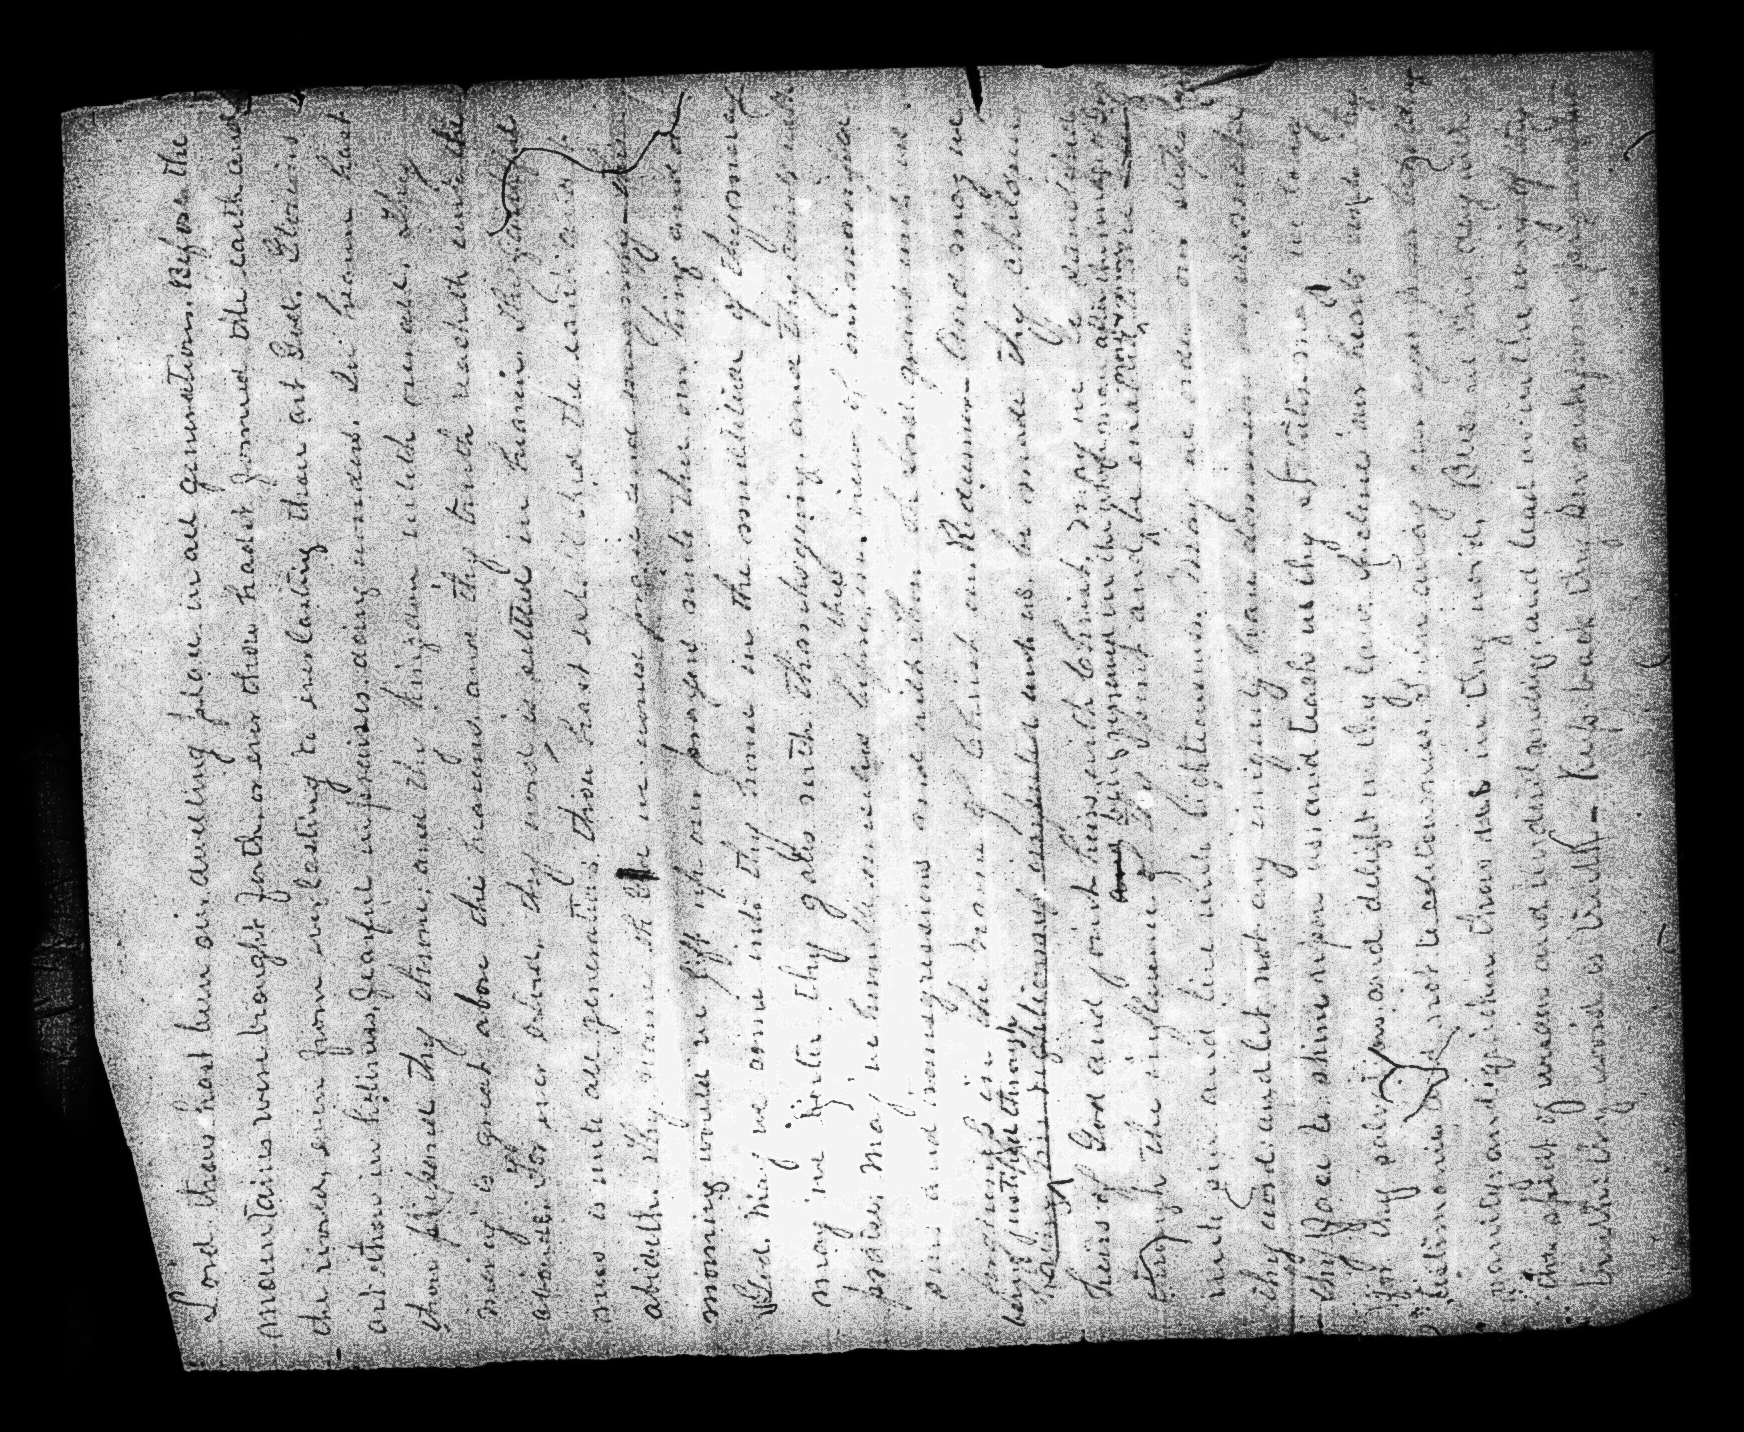 Lord thou hast been our dwelling place in all generations. Before the
mountains were brought forth or ever thou hadst formed the earth and
the world, even from everlasting to everlasting thou art God. Glorious
art thou in holiness, fearful in praises, doing wonders. In heaven hast
thou prepared thy throne, and thy kingdom ruleth over all. Thy
mercy is great above the heavens and thy truth reacheth unto the
clouds. For ever O Lord, thy word is settled in heaven. Thy faithful
ness is unto all generations, thou hast established the earth and it
abideth. Thy name O Lord we
morning would we lift up our prayer unto thee our King and our
God. May we come into thy house in the multitude of thy mercy
may we enter thy gates with thanksgiving and thy courts with
praise. May we humble ourselves before thee in view of our manifold
sins and transgressions and wilt thou O Lord
for in the name of Jesus Christ our Redeemer. And may we
being justified through
his righteousness be made thy children
heirs of God and joint heirs with Christ. may we be sanctified
being renewed in the whole man after the image of God
through the influence of thy Spirit and be enabled more and more to die
unto sin and live unto righteousness. may we order our steps in
thy word: and let not any iniquity have dominion over us. make
thy face to shine upon us and teach us thy statutes. may we long
for thy salvation and delight in thy law. incline our hearts unto thy
testimonies and not to covetousness. turn away our eyes from beholding
vanity, and quicken thou us in thy word. Give us
the spirit of wisdom and understanding, and lead us in the way of thy
truth: thy word is truth — Keep back thy servants from